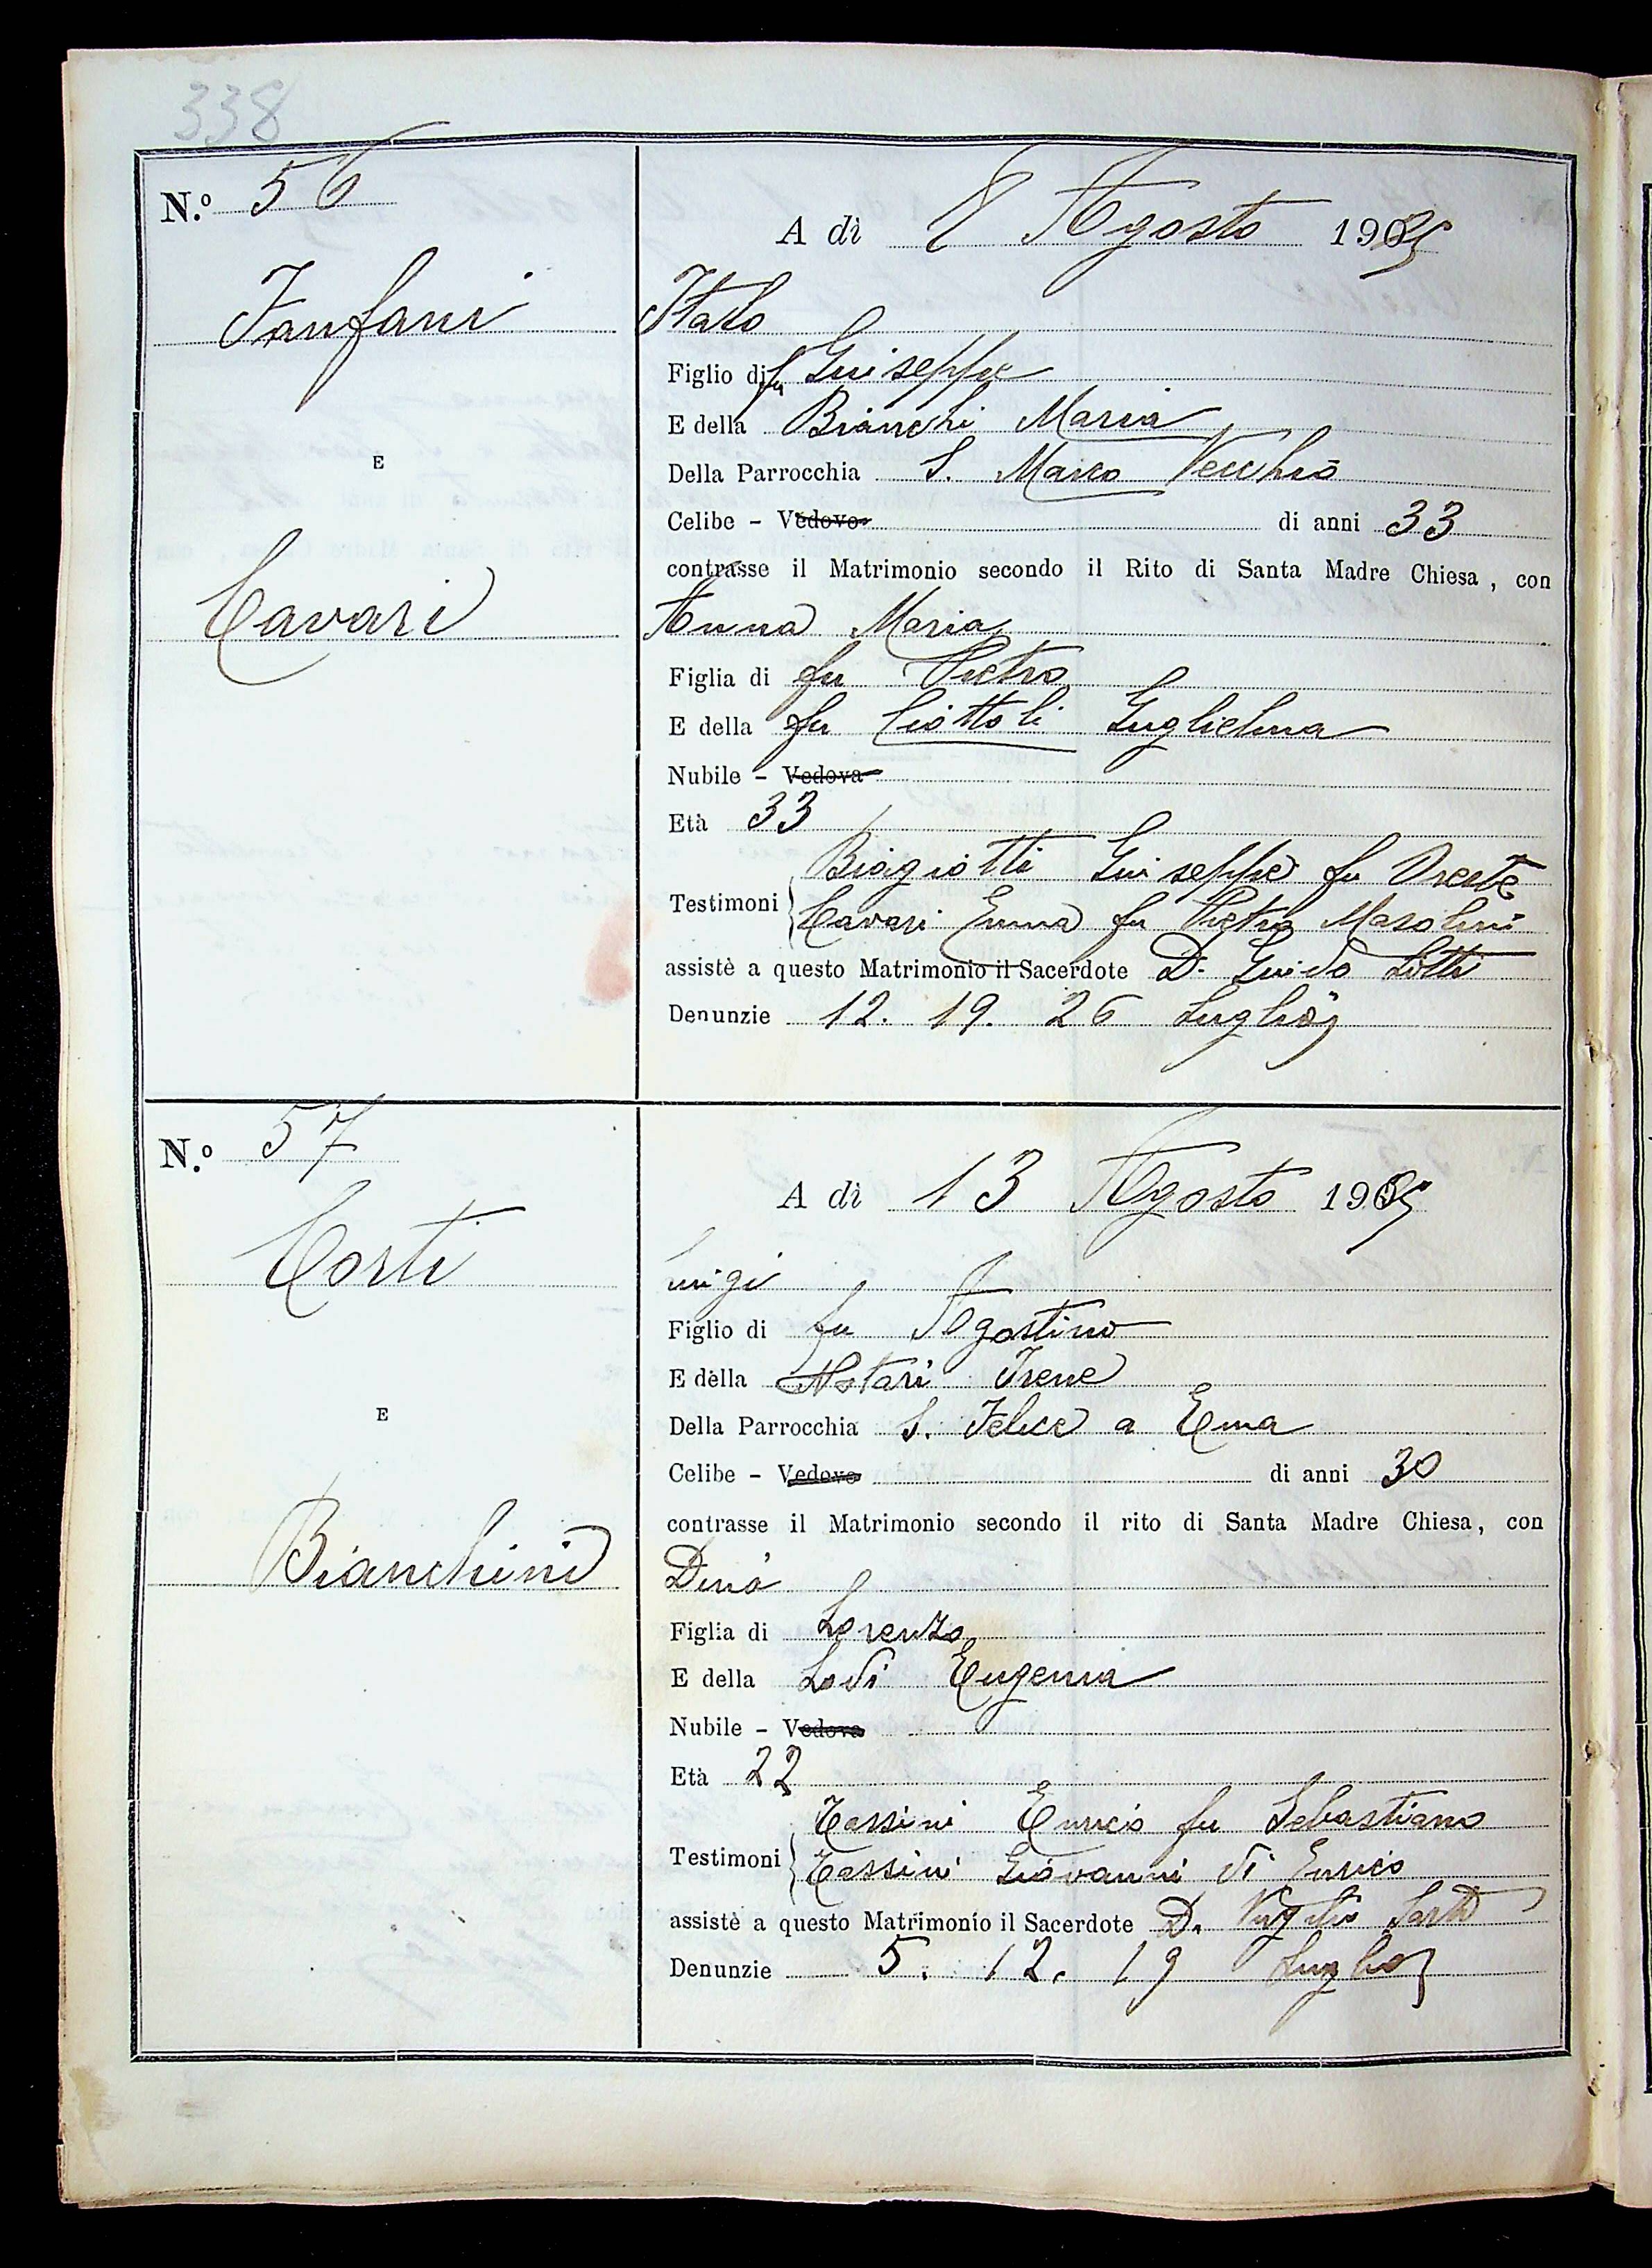 338
N.º 56
A dì 8 Agosto 1925
Fanfani
Italo
Figlio di fu Giuseppe
E della Bianchi Maria
Della Parrocchia S. Marco Vecchio
E
Celibe - Vedovo di anni 33
contrasse il Matrimonio secondo il Rito di Santa Madre Chiesa, con
Cavari
Anna Maria
Figlia di fu Pietro
E della fu Ciottoli Guglielma
Nubile - Vedova
Età 33
Testimoni { Biagiotti Giuseppe fu Oreste
Cavari Emma fu Pietro Masolini
assistè a questo Matrimonio il Sacerdote D. Guido Lotti
Denunzie 12. 19. 26 Luglio
N.º 57
A dì 13 Agosto 1925
Corti
Luigi
Figlio di fu Agostino
E della Notari Irene
Della Parrocchia S. Felice a Ema
E
Celibe - Vedovo di anni 30
contrasse il Matrimonio secondo il rito di Santa Madre Chiesa, con
Bianchini
Dina
Figlia di Lorenzo
E della Lodi Eugenia
Nubile - Vedova
Età 22
Testimoni { Cassini Enrico fu Sebastiano
Cassini Giovanni di Enrico
assistè a questo Matrimonio il Sacerdote D. Virgilio Sarti
Denunzie 5. 12. 19 Luglio